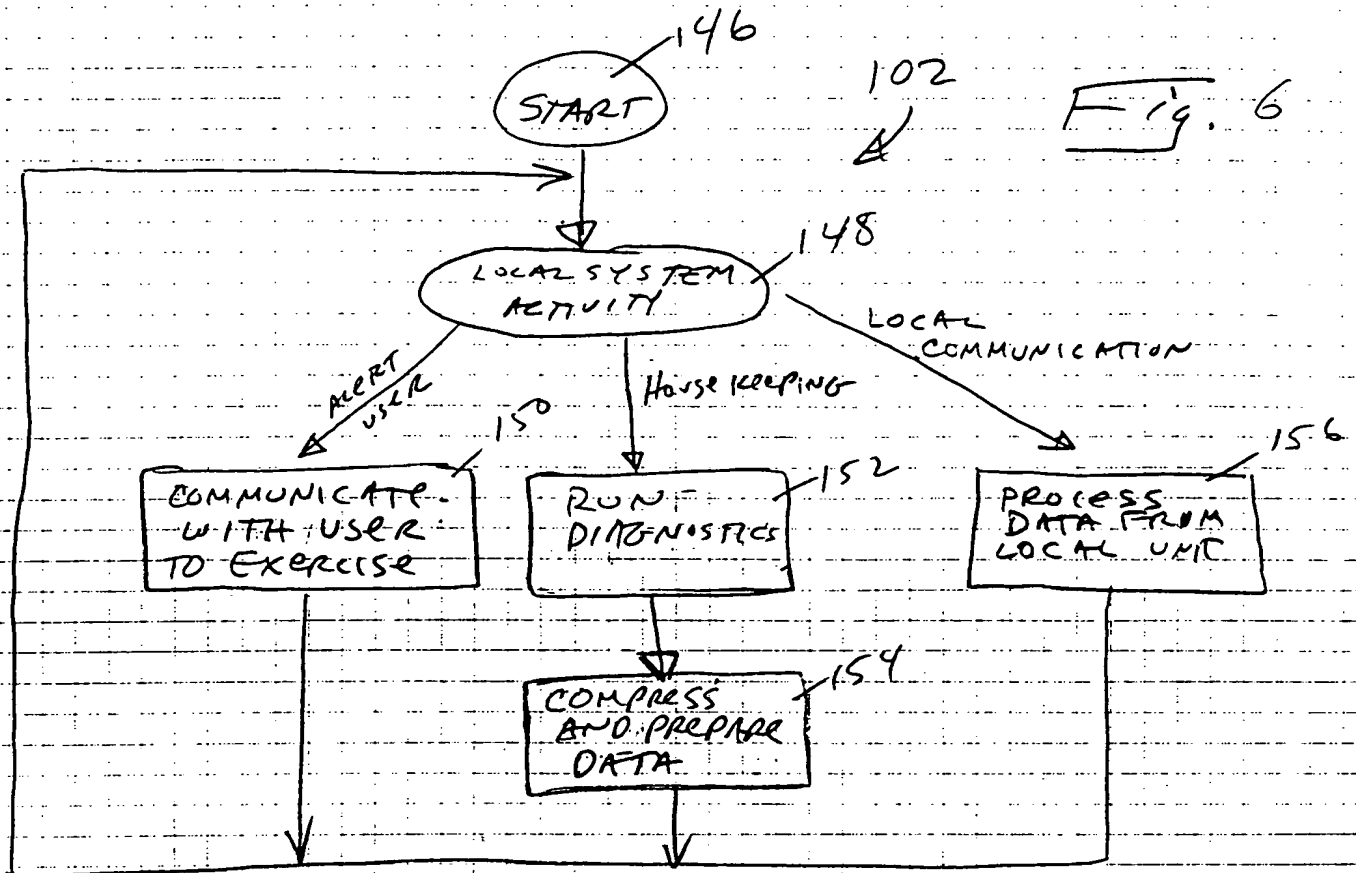 146
START
102
Fig. 6
148
LOCAL SYSTEM
ACTIVITY
ALERT
USER
HOUSEKEEPING
LOCAL
COMMUNICATION
150
COMMUNICATE
WITH USER
TO EXERCISE
152
RUN
DIAGNOSTICS
156
PROCESS
DATA FROM
LOCAL UNIT
154
COMPRESS
AND PREPARE
DATA